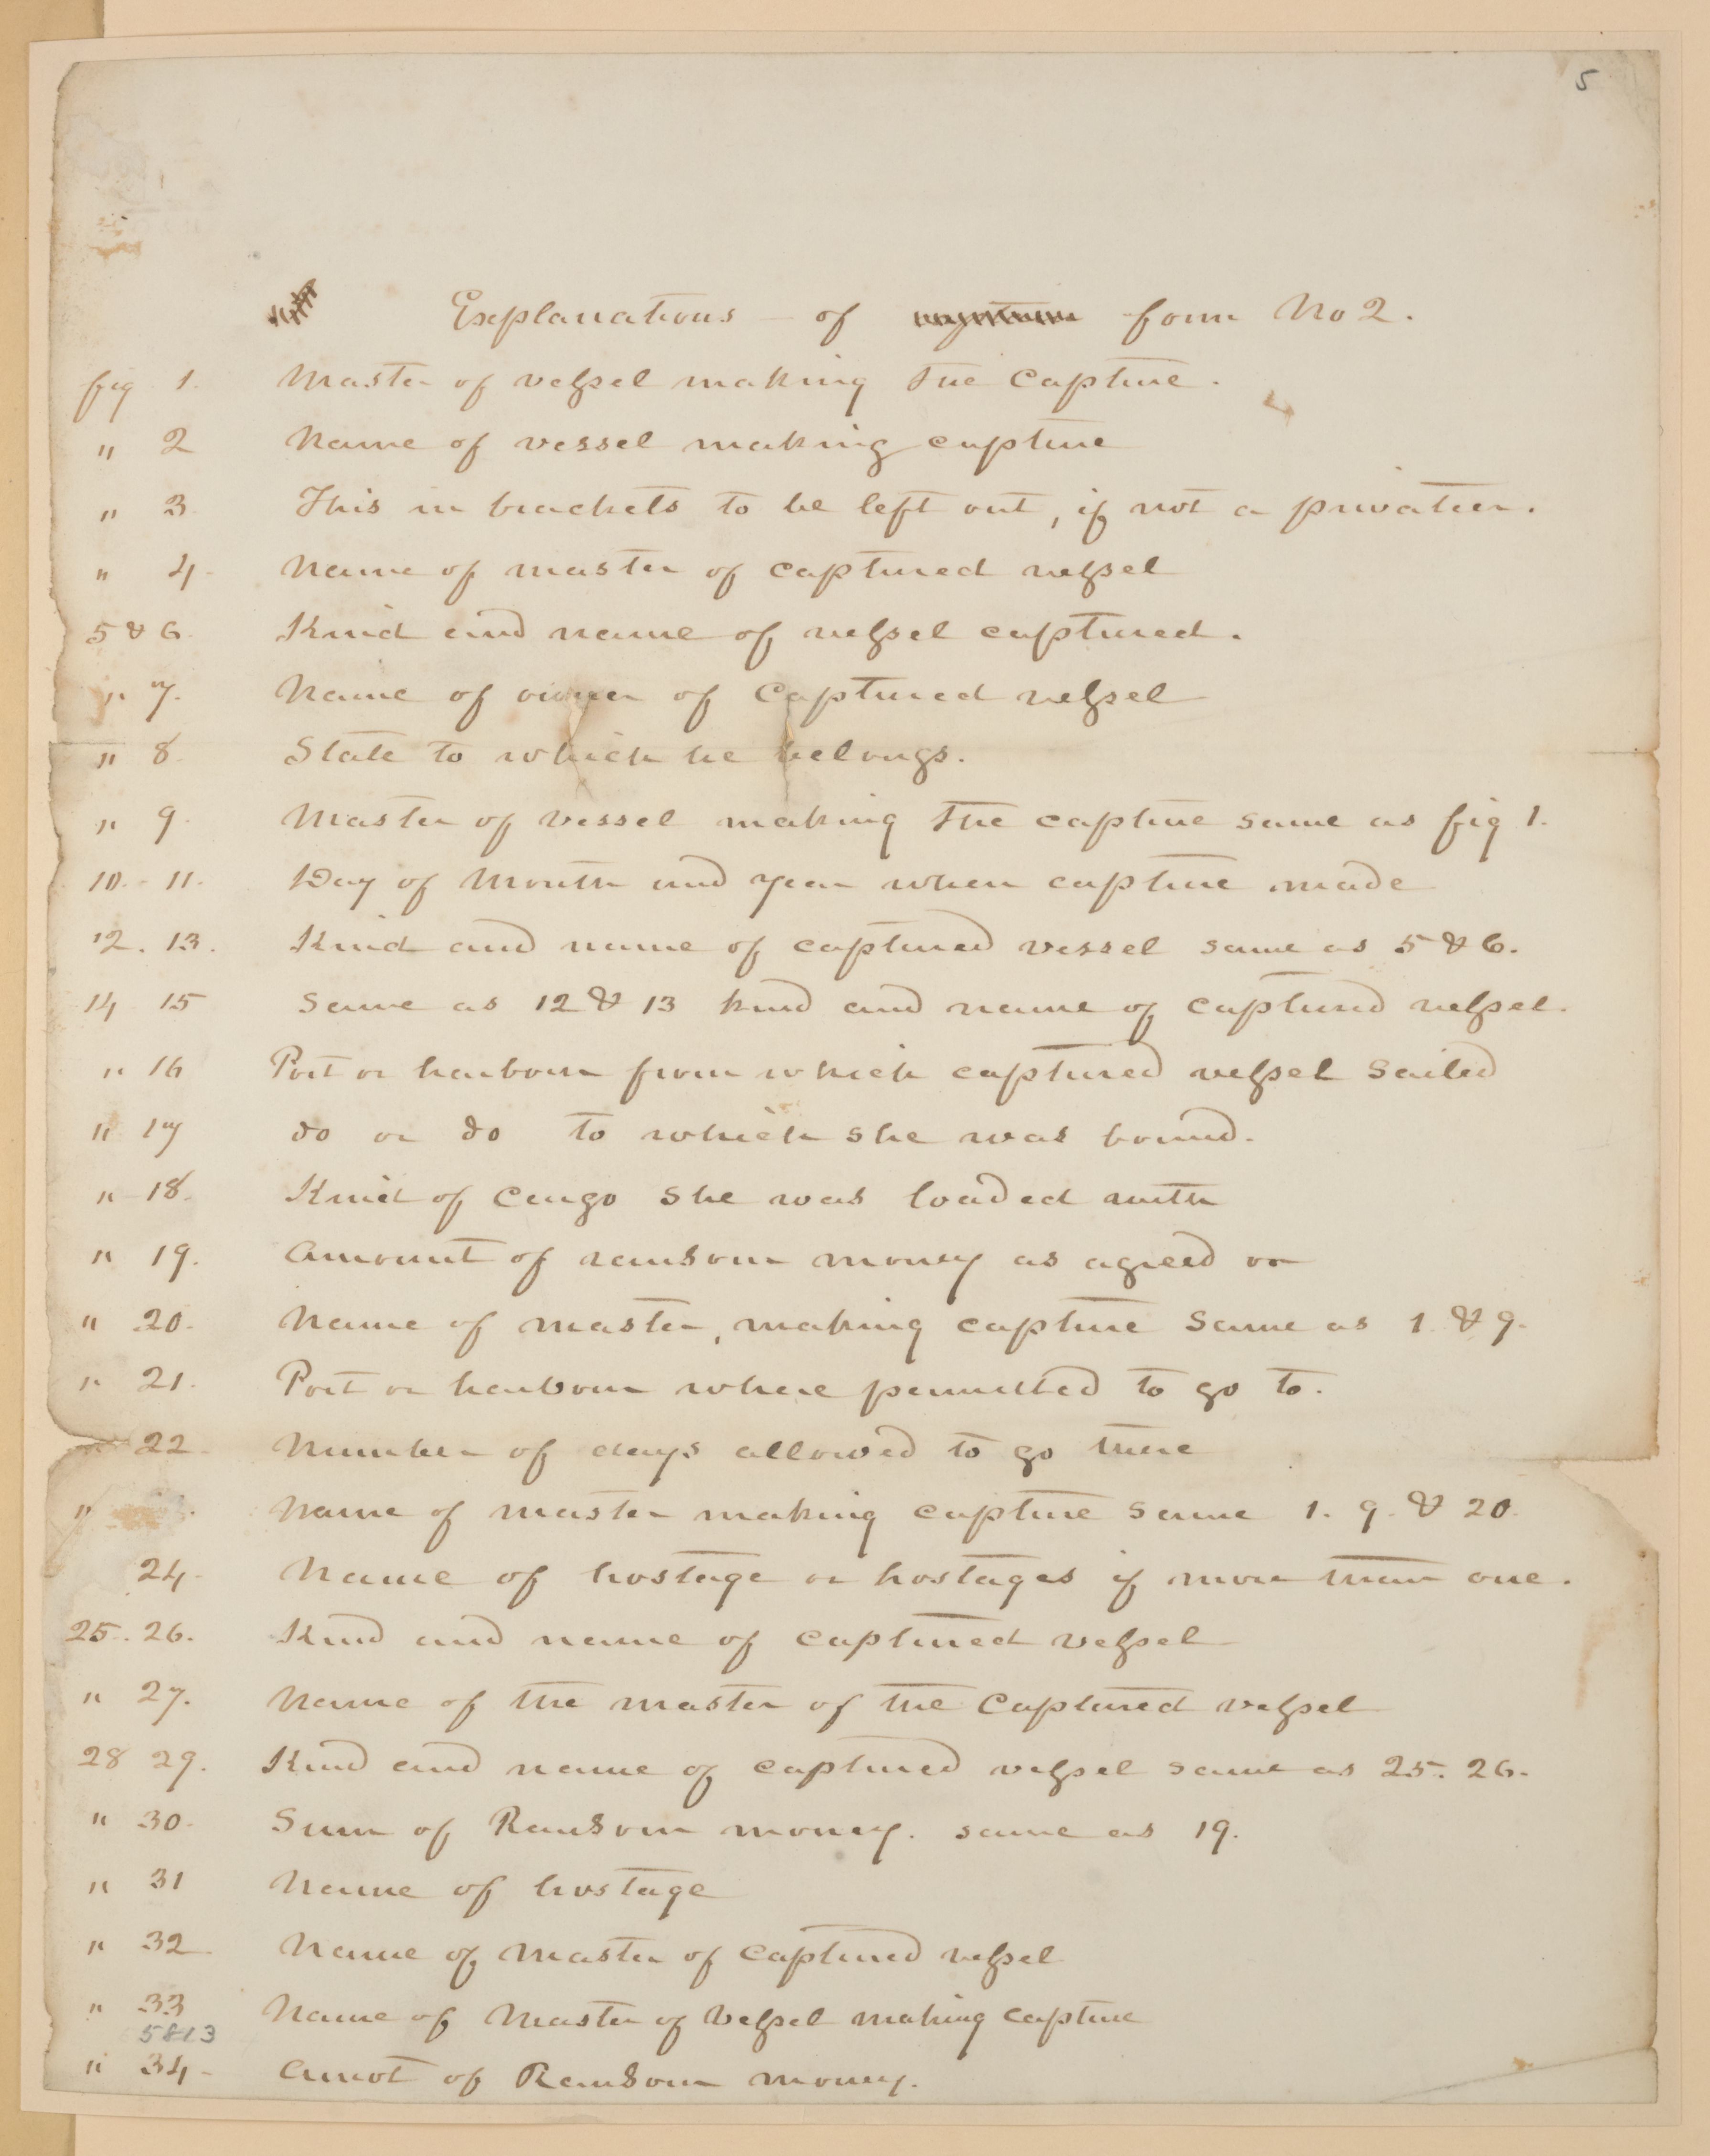 5
Explanations of form No 2.
fig 1. Master of vessel making the Capture.
" 2 Name of vessel making capture
" 3 This in brackets to be left out, if not a privateer.
" 4 Name of master of captured vessel
5 & 6. Kind and name of vessel captured.
" 7. Name of owner of Captured vessel
" 8 State to which he belongs.
" 9. Master of vessel making the capture same as fig 1.
10. - 11. Day of Month and year when capture made
12. 13. Kind and name of captured vessel same as 5 & 6.
14 15 Same as 12 & 13 kind and name of captured vessel.
" 16 Port or harbour from which captured vessel Sailed
" 17 do or do to which she was bound.
" 18. Kind of Cargo She was loaded with
" 19. Amount of ransom money as agreed on
" 20. Name of master, making capture Same as 1. & 9.
" 21. Port or harbour where permitted to go to.
22 Number of days allowed to go there
" Name of master making capture same 1. 9. & 20.
24 Name of hostage or hostages if more than one.
25. 26. Kind and name of captured vessel
" 27. Name of the master of the Captured vessel
28 29. Kind and name of captured vessel same as 25. 26.
" 30. Sum of Ransom money. same as 19.
" 31 Name of hostage
" 32 Name of Master of Captured vessel
" 33 Name of Master of Vessel making capture
5813
" 34 Amot of Ransom money.